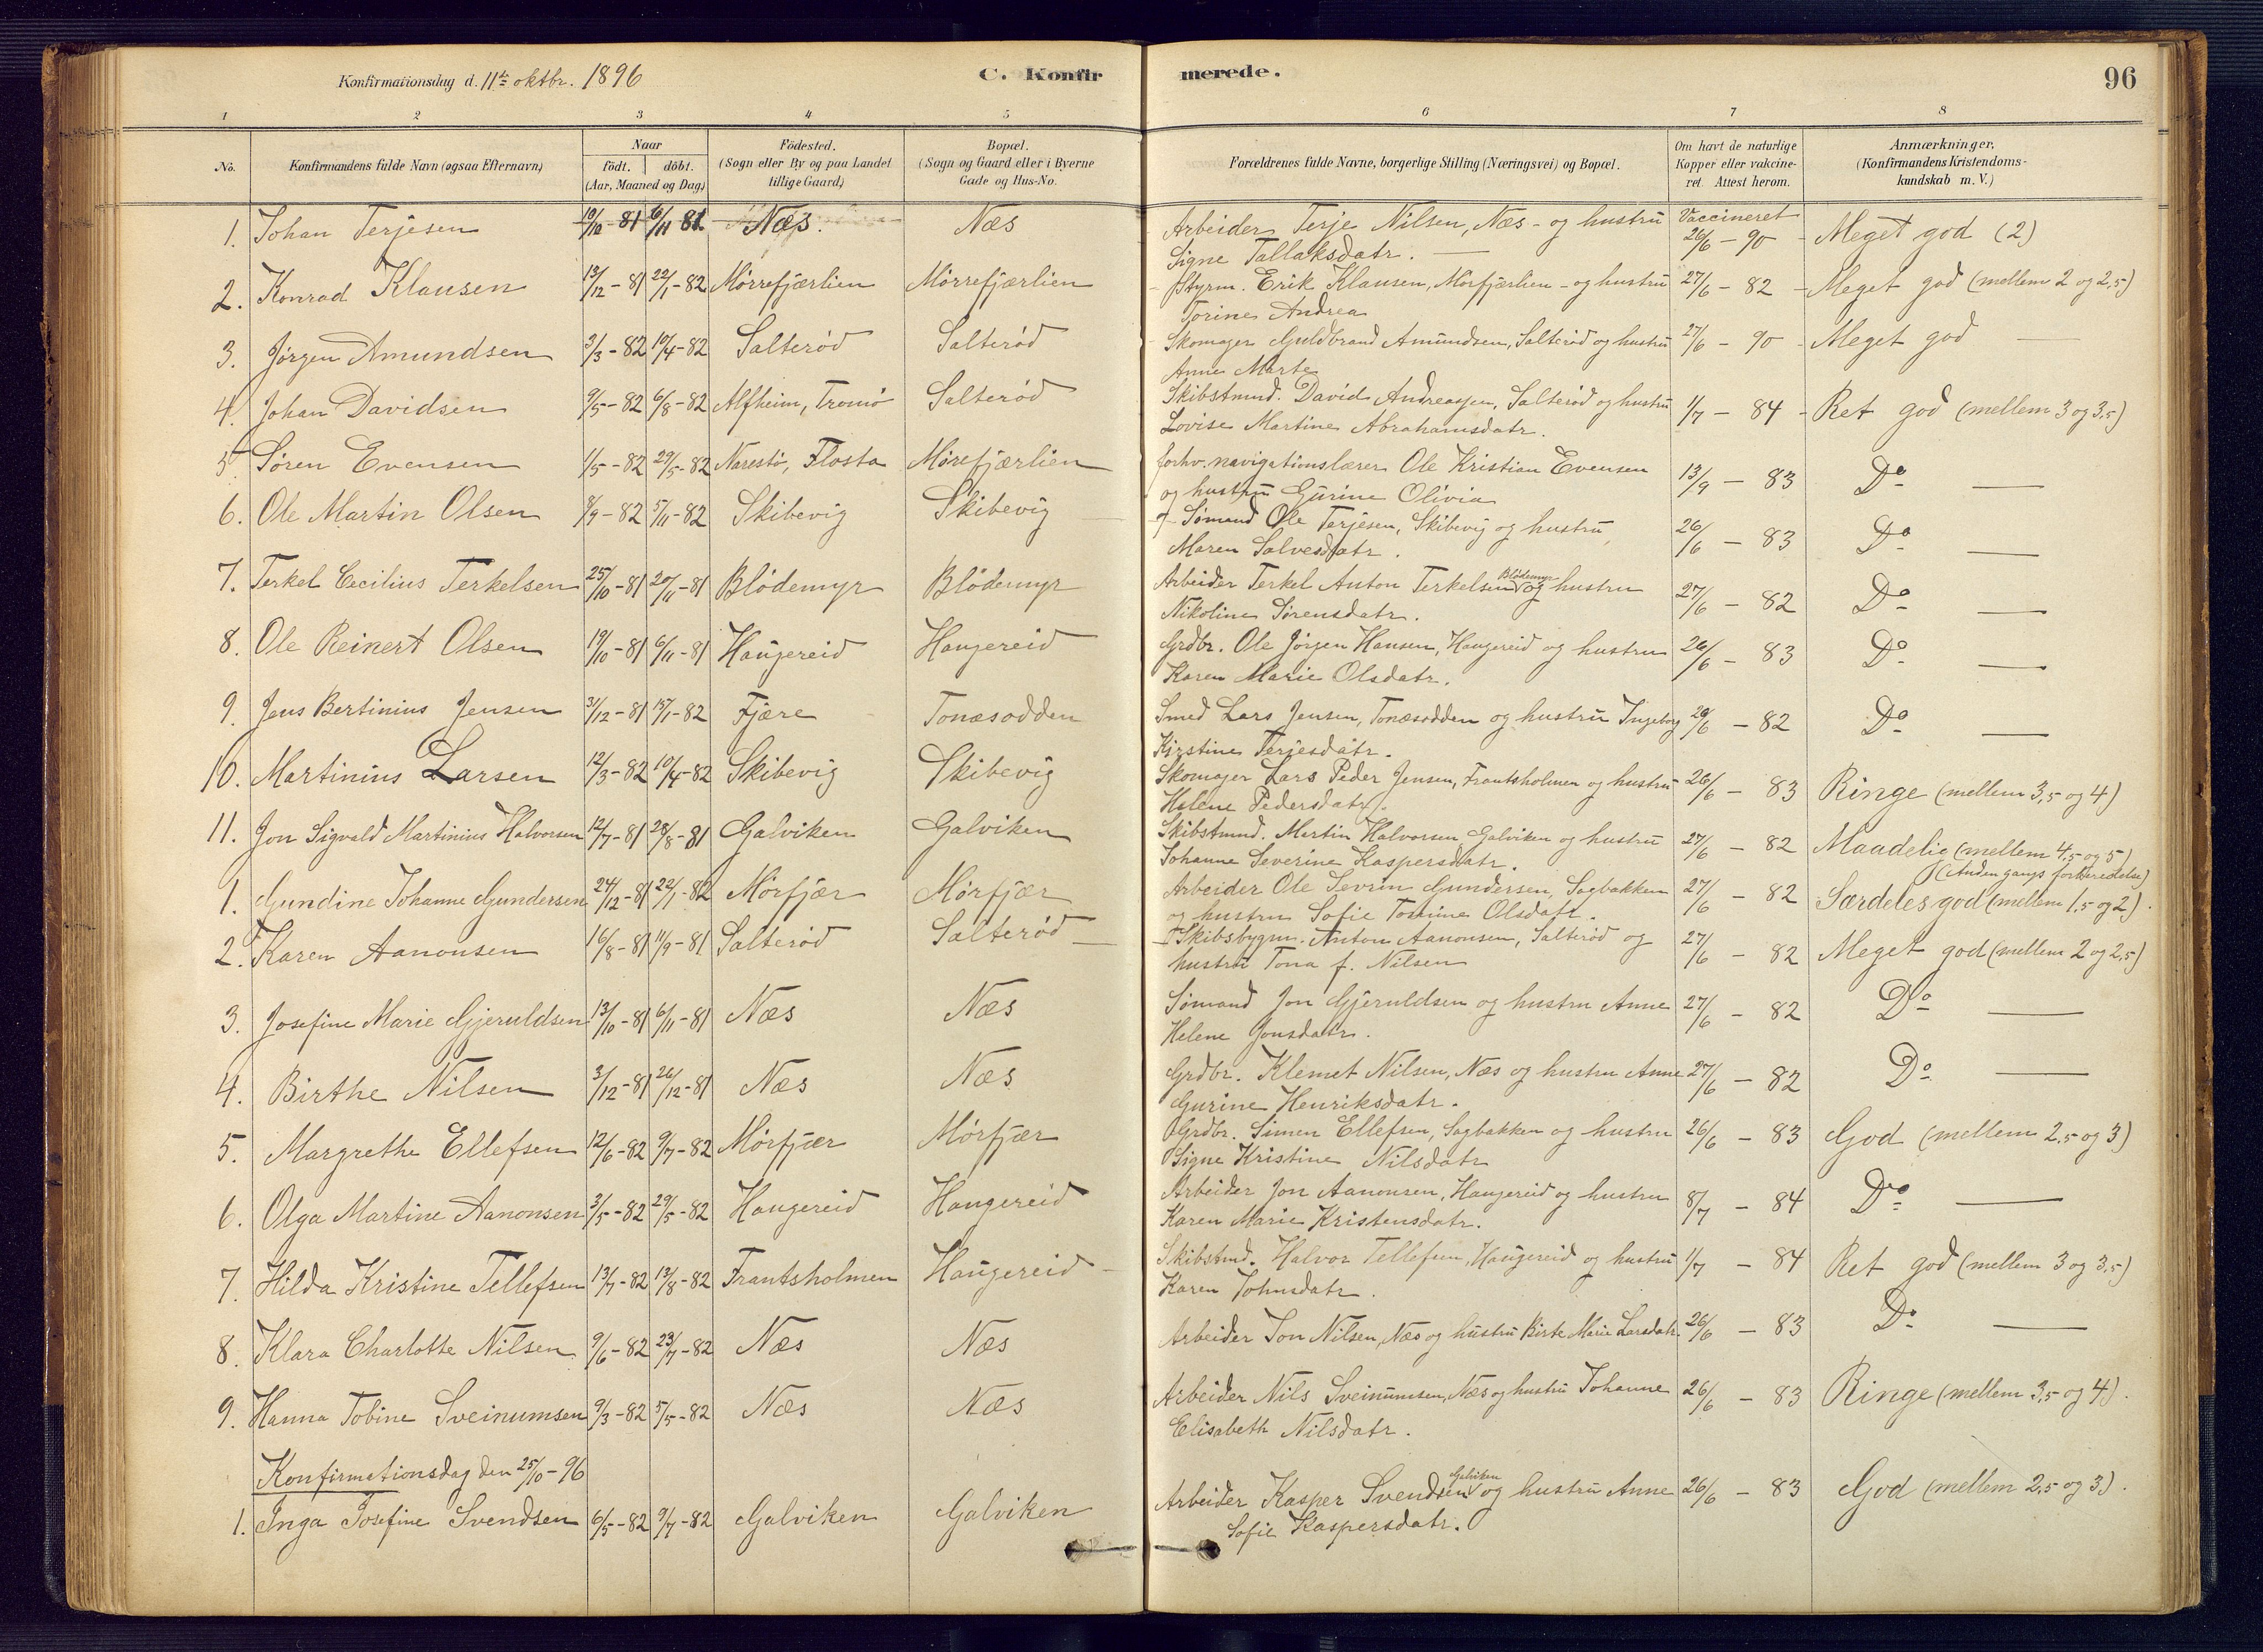 Konfirmationsdag d. 11te oktbr. 1896
C. Konfirmerede.
96
1 2 3 4 5 6 7 8
No.
Konfirmandens fulde Navn (ogsaa Efternavn)
Naar
födt. döbt.
(Aar, Maaned og Dag)
Födested.
(Sogn eller By og paa Landet
tillige Gaard)
Bopæl.
(Sogn og Gaard eller i Byerne
Gade og Hus-No.
Forældrenes fulde Navne, borgerlige Stilling (Næringsvei) og Bopæl.
Om havt de naturlige
Kopper eller vakcine-
ret. Attest herom.
Anmærkninger,
(Konfirmandens Kristendoms-
kundskab m. V.)
1. Johan Terjesen 19/10-81 6/11 81 Næs. Næs Arbeider Terje Nilsen, Næs - og hustru Vaccineret 26/6 - 90 - Meget god (2)
Signe Tallaksdatr.
2. Konrad Klausen 13/12-81 22/1-82 Mörrefjærlien Mörrefjærlien Styrm. Erik Klausen, Mörfjærlien - og hustru 27/6 - 82 - Meget god (mellem 2 og 2,5)
Torine Andrea
3. Jörgen Amundsen 3/3-82 10/4-82 Salteröd Salteröd Skomager Guldbrand Amundsen, Salteröd og hustru 27/6 - 90 - Meget god
Anne Marte
4. Johan Davidsen 9/5-82 6/8-82 Alfheim, Tromö Salteröd Skibstmd. David Andreasen, Salteröd og hustru 1/7 - 84 - Ret god (mellem 3 og 3,5)
Lovise Martine Abrahamsdatr.
5 Sören Evensen 1/5-82 29/5-82 Narestö, Flosta Mörefjærlien forhv. navigationslærer Ole Kristian Evensen 13/9 - 83 Do
og hustru Gurine Olivia
6. Ole Martin Olsen 8/9-82 5/11-82 Skibevig Skibevig Sömand Ole Terjesen, Skibevig og hustru 26/6 - 83 Do
Maren Salvesdatr.
7. Terkel Cecilius Terkelsen 25/10-81 20/11-81 Blödemyr Blödemyr Arbeider Terkel Anton Terkelsen Blödemyr og hustru 27/6 - 82 Do
Nikoline Sörensdatr.
8. Ole Reinert Olsen 19/10-81 6/11-81 Haugereid Haugereid Grdbr. Ole Jörgen Hansen, Haugereid og hustru 26/6 - 83 Do
Karen Marie Olsdatr.
9. Jens Bertinius Jensen 31/12-81 15/1-82 Fjære Tonæsodden Smed Lars Jensen, Tonæsodden og hustru Ingeborg 26/6 - 82 Do
Kirstine Terjesdatr.
10. Martinius Larsen 12/3-82 10/4-82 Skibevig Skibevig Skomager Lars Peder Jensen, Frantsholmen og hustru 26/6 - 83 Ringe (mellem 3,5 og 4)
Helene Pedersdatr.
11. Jon Sigvald Martinius Halvorsen 12/7-81 28/8-81 Galviken Galviken Skibstmd. Martin Halvorsen Galviken og hustru 27/6 - 82 Maadelig (mellem 4,5 og 5)
Johanne Severine Kaspersdatr. (Anden gangs forberedelse)
1. Gundine Johanne Gundersen 24/12-81 22/1-82 Mörfjær Mörfjær Arbeider Ole Sevrin Gundersen, Sagbakken 27/6 - 82 Særdeles god (mellem 1,5 og 2).
og hustru Sofie Tomine Olsdatr.
2. Karen Aanonsen 16/8-81 11/9-81 Salteröd Salteröd Skibsbygm. Anton Aanonsen, Salteröd og 27/6 - 82 Meget god (mellem 2 og 2,5)
hustru Tona f. Nilsen
3. Josefine Marie Gjeruldsen 13/10-81 6/11-81 Næs Næs Sömand Jon Gjeruldsen og hustru Anne 27/6 - 82 Do
Helene Jonsdatr.
4. Birthe Nilsen 3/12-81 26/12-81 Næs Næs Grdbr. Klemet Nilsen, Næs og hustru Anne 27/6 - 82 Do
Gurine Henriksdatr.
5. Margrethe Ellefsen 12/6-82 9/7-82 Mörfjær Mörfjær Grdbr. Simen Ellefsen, Sagbakken og hustru 26/6 - 83 God (mellem 2,5 og 3)
Signe Kristine Nilsdatr
6. Olga Martine Aanonsen 3/5-82 29/5-82 Haugereid Haugereid Arbeider Jon Aanonsen, Haugereid og hustru 8/7 - 84 Do
Karen Marie Kristensdatr.
7. Hilda Kristine Tellefsen 13/7-82 13/8-82 Frantsholmen Haugereid Skibstmd. Halvor Tellefsen, Haugereid og hustru 1/7 - 84 Ret god (mellem 3 og 3,5)
Karen Johnsdatr.
8. Klara Charlotte Nilsen 9/6-82 23/7-82 Næs Næs Arbeider Jon Nilsen, Næs og hustru Birte Marie Larsdatr. 26/6 - 83 Do
9. Hanna Tobine Sveinumsen 9/3-82 5/5-82 Næs Næs Arbeider Nils Sveinumsen, Næs og hustru Johanne 26/6 - 83 Ringe (mellem 3,5 og 4).
Elisabeth Nilsdatr.
Konfirmationsdag den 25/10-96
1. Inga Josefine Svendsen 6/5-82 9/7-82 Galviken Galviken Arbeider Kasper Svendsen Galviken og hustru Anne 26/6 - 83 God (mellem 2,5 og 3).
Sofie Kaspersdatr.